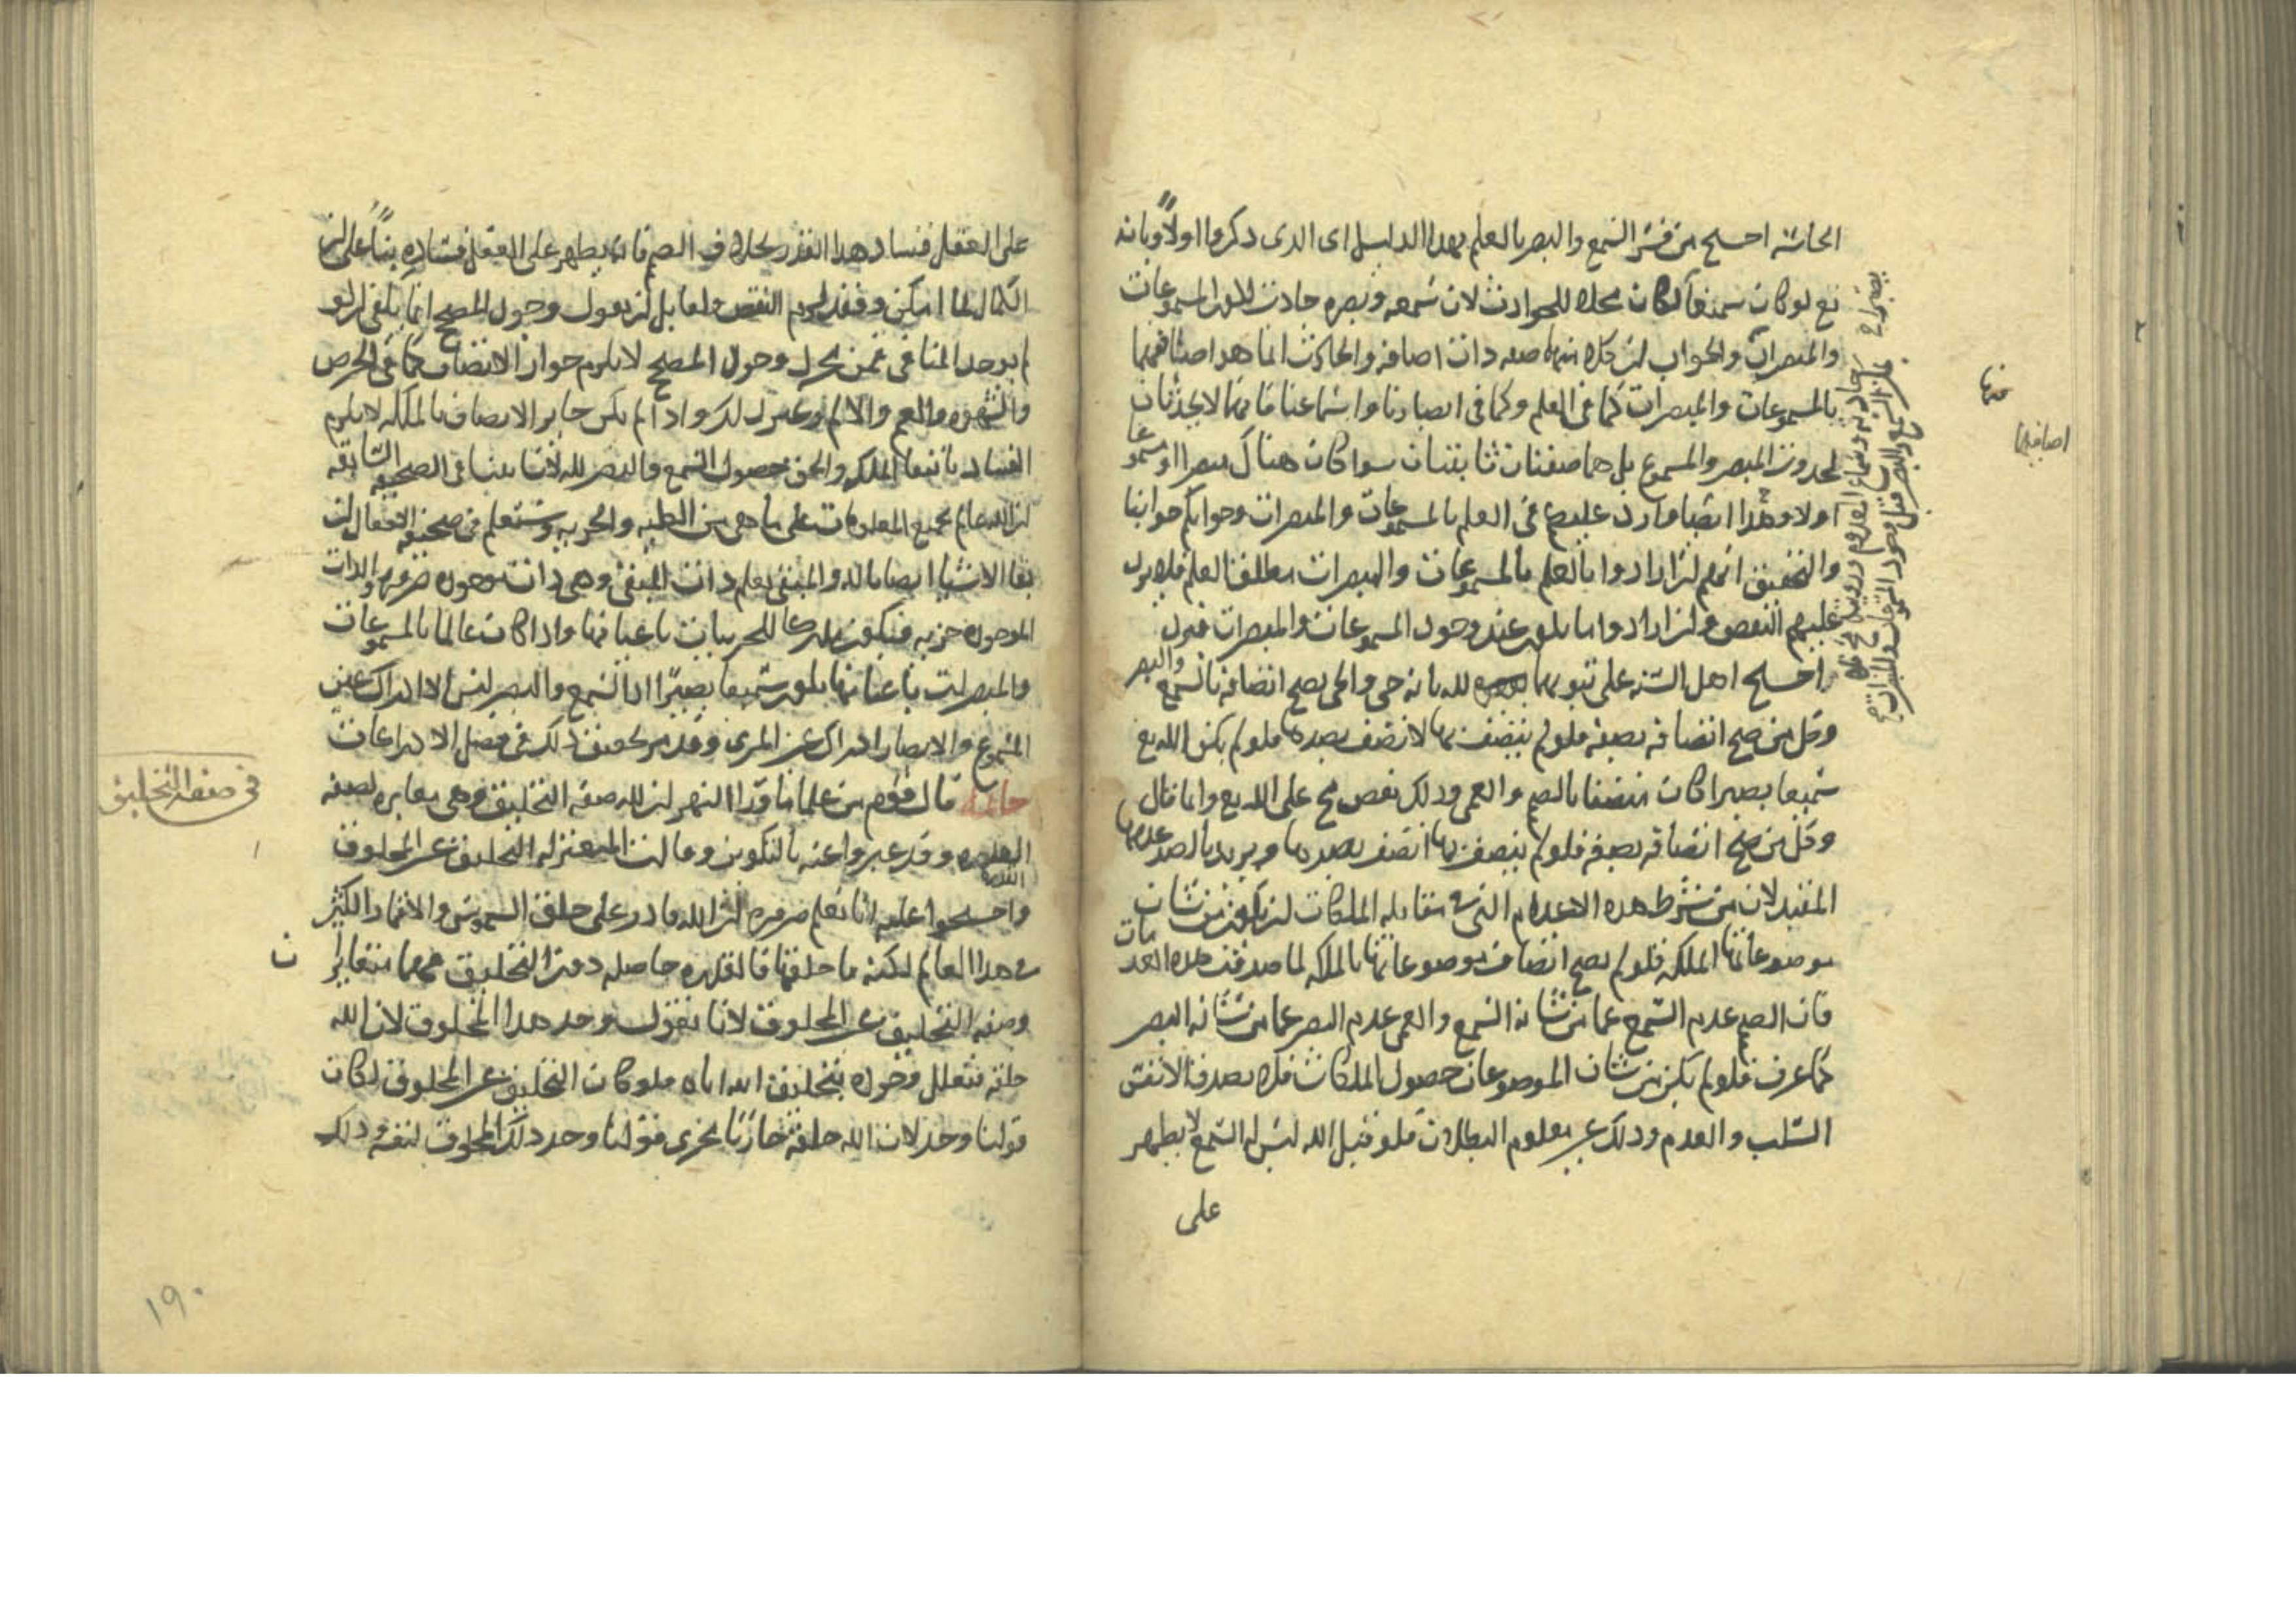 الحاسّة احتج من فسّر السّمع والبصر بالعلم بهذا الدليل اى الذى ذكروا اولاً وبانه
تع لو كان سميعاً لكان محلا للحوادث لان سمعه وبصره حادث المسموعات
والمبصرات والجواب ان كلا منهما صفه ذات اضافه والحادث انما هو اضافتهما
بالمسموعات والمبصرات كما فى العلم وكما فى ابصارنا واسماعنا فانهما لا يحدثان
لحدوث المبصر والمسموع بل هما صفتان ثابتتان سوا كان هناك مبصرا او مسموعا
اولا وهذا ايضا وارد عليهم فى العلم بالمسموعات والمبصرات وجوابكم جوابنا
والتحقيق انهم ان ارادوا بالعلم بالمسموعات والمبصرات مطلق العلم فلا يرد
عليهم النقض وان ارادوا ما يلزم عند وجود المسموعات والمبصرات فيرد
احتج اهل السّنه على ثبوتهما لله بانه حى والحى يصح اتصافه بالسّمع والبصر
وكل من صح اتصافه بصفه فلو لم يتصف بها لاتصف بضدها فلو لم يكن الله تع
سميعا بصيرا كان متصفا بالصم والعمى وذلك نقص مح على الله تع وانما قال
وكل من صح اتصافه بصفه فلو لم يتصف بها اتصف بضدها ويريد بالضد عدمها
المقيد لان من شرط هذه الاعدام التى فى مقابله الملكات ان يكون من شان
موضوعاتها الملكه فلو لم يصح اتصاف موضوعاتها بالملكه لما صدقت هذه العدمات
فان الصم عدم السّمع عما من شانه السّمع والعمى عدم البصر عما من شانه البصر
كما عرف فلو لم يكن من شان الموضوعات حصول الملكات فلا يصدق الا نفس
السّلب والعدم وذلك غير معلوم البطلان فلو قيل الله ليس له السّمع لا يظهر
على
منها
اضافتها
على العقل فساد هذا القدر بخلاف الصم فانه يظهر على العقل فساده بناً على ان
الكمال لما امكن وفقد لزم النقص ولقايل ان يقول وجود المصحح انما يكفى ان لو
لم يوجد المنافى فمن مجرد وجود المصحح لا يلزم جواز الاتصاف كما فى الحرص
والشهوه والغم والالم وغير ذلك واذا لم يكن جايز الاتصاف بالملكه لا يلزم
الفساد بانتفا الملكه والحق حصول السّمع والبصر لله لانا بينا فى الصحيفه السّابقه
ان الله عالم بجميع المعلومات على ما هى من الكليه والجزييه وستعلم فى صحيفه الافعال ان
بقا الاشيا ايضا بالله والمبقى يعلم ذات المبقى وهى ذات موجوده ضروره والذات
الموجوده جزييه فيكون مدركا للجزييات باعيانها واذا كان عالما بالمسموعات
والمبصرات باعيانها يكون سميعا بصيرًا اذ السّمع والبصر ليس الا ادراك عين
المسموع والابصار ادراك عين المرى وقد مر تحقيق ذلك فى فصل الادراكات
خاتمه قال قوم من علما ما ورا النهر ان لله صفه التخليق وهى مغايره لصفه
القدره وقد عبروا عنه بالتكوين وقالت المعتزله التخليق عين المخلوق
واحتجوا عليه انا نعلم ضروره ان الله قادر على خلق السموس والاقمار الكثيره
فى هذا العالم لكنه ما خلقها فالقدره حاصله دون التخليق فهما متغايران
وصفه التخليق غير المخلوق لانا نقول وجد هذا المخلوق لان الله
خلقه فنعلل وجوده بتخليق الله اياه فلو كان التخليق عين المخلوق لكان
قولنا وجد لان الله خلقه جاريًا مجرى قولنا وجد ذلك المخلوق لنفسه وذلك
فى صفة التخليق
١٩٠